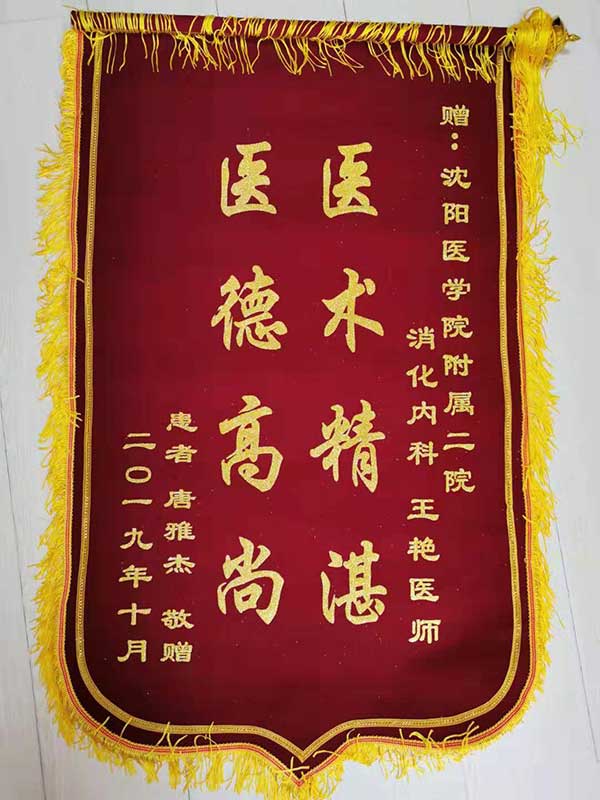 赠：沈阳医学院附属二院
消化内科 王艳医师
医术精湛
医德高尚
患者 唐雅杰 敬赠
二〇一九年十月